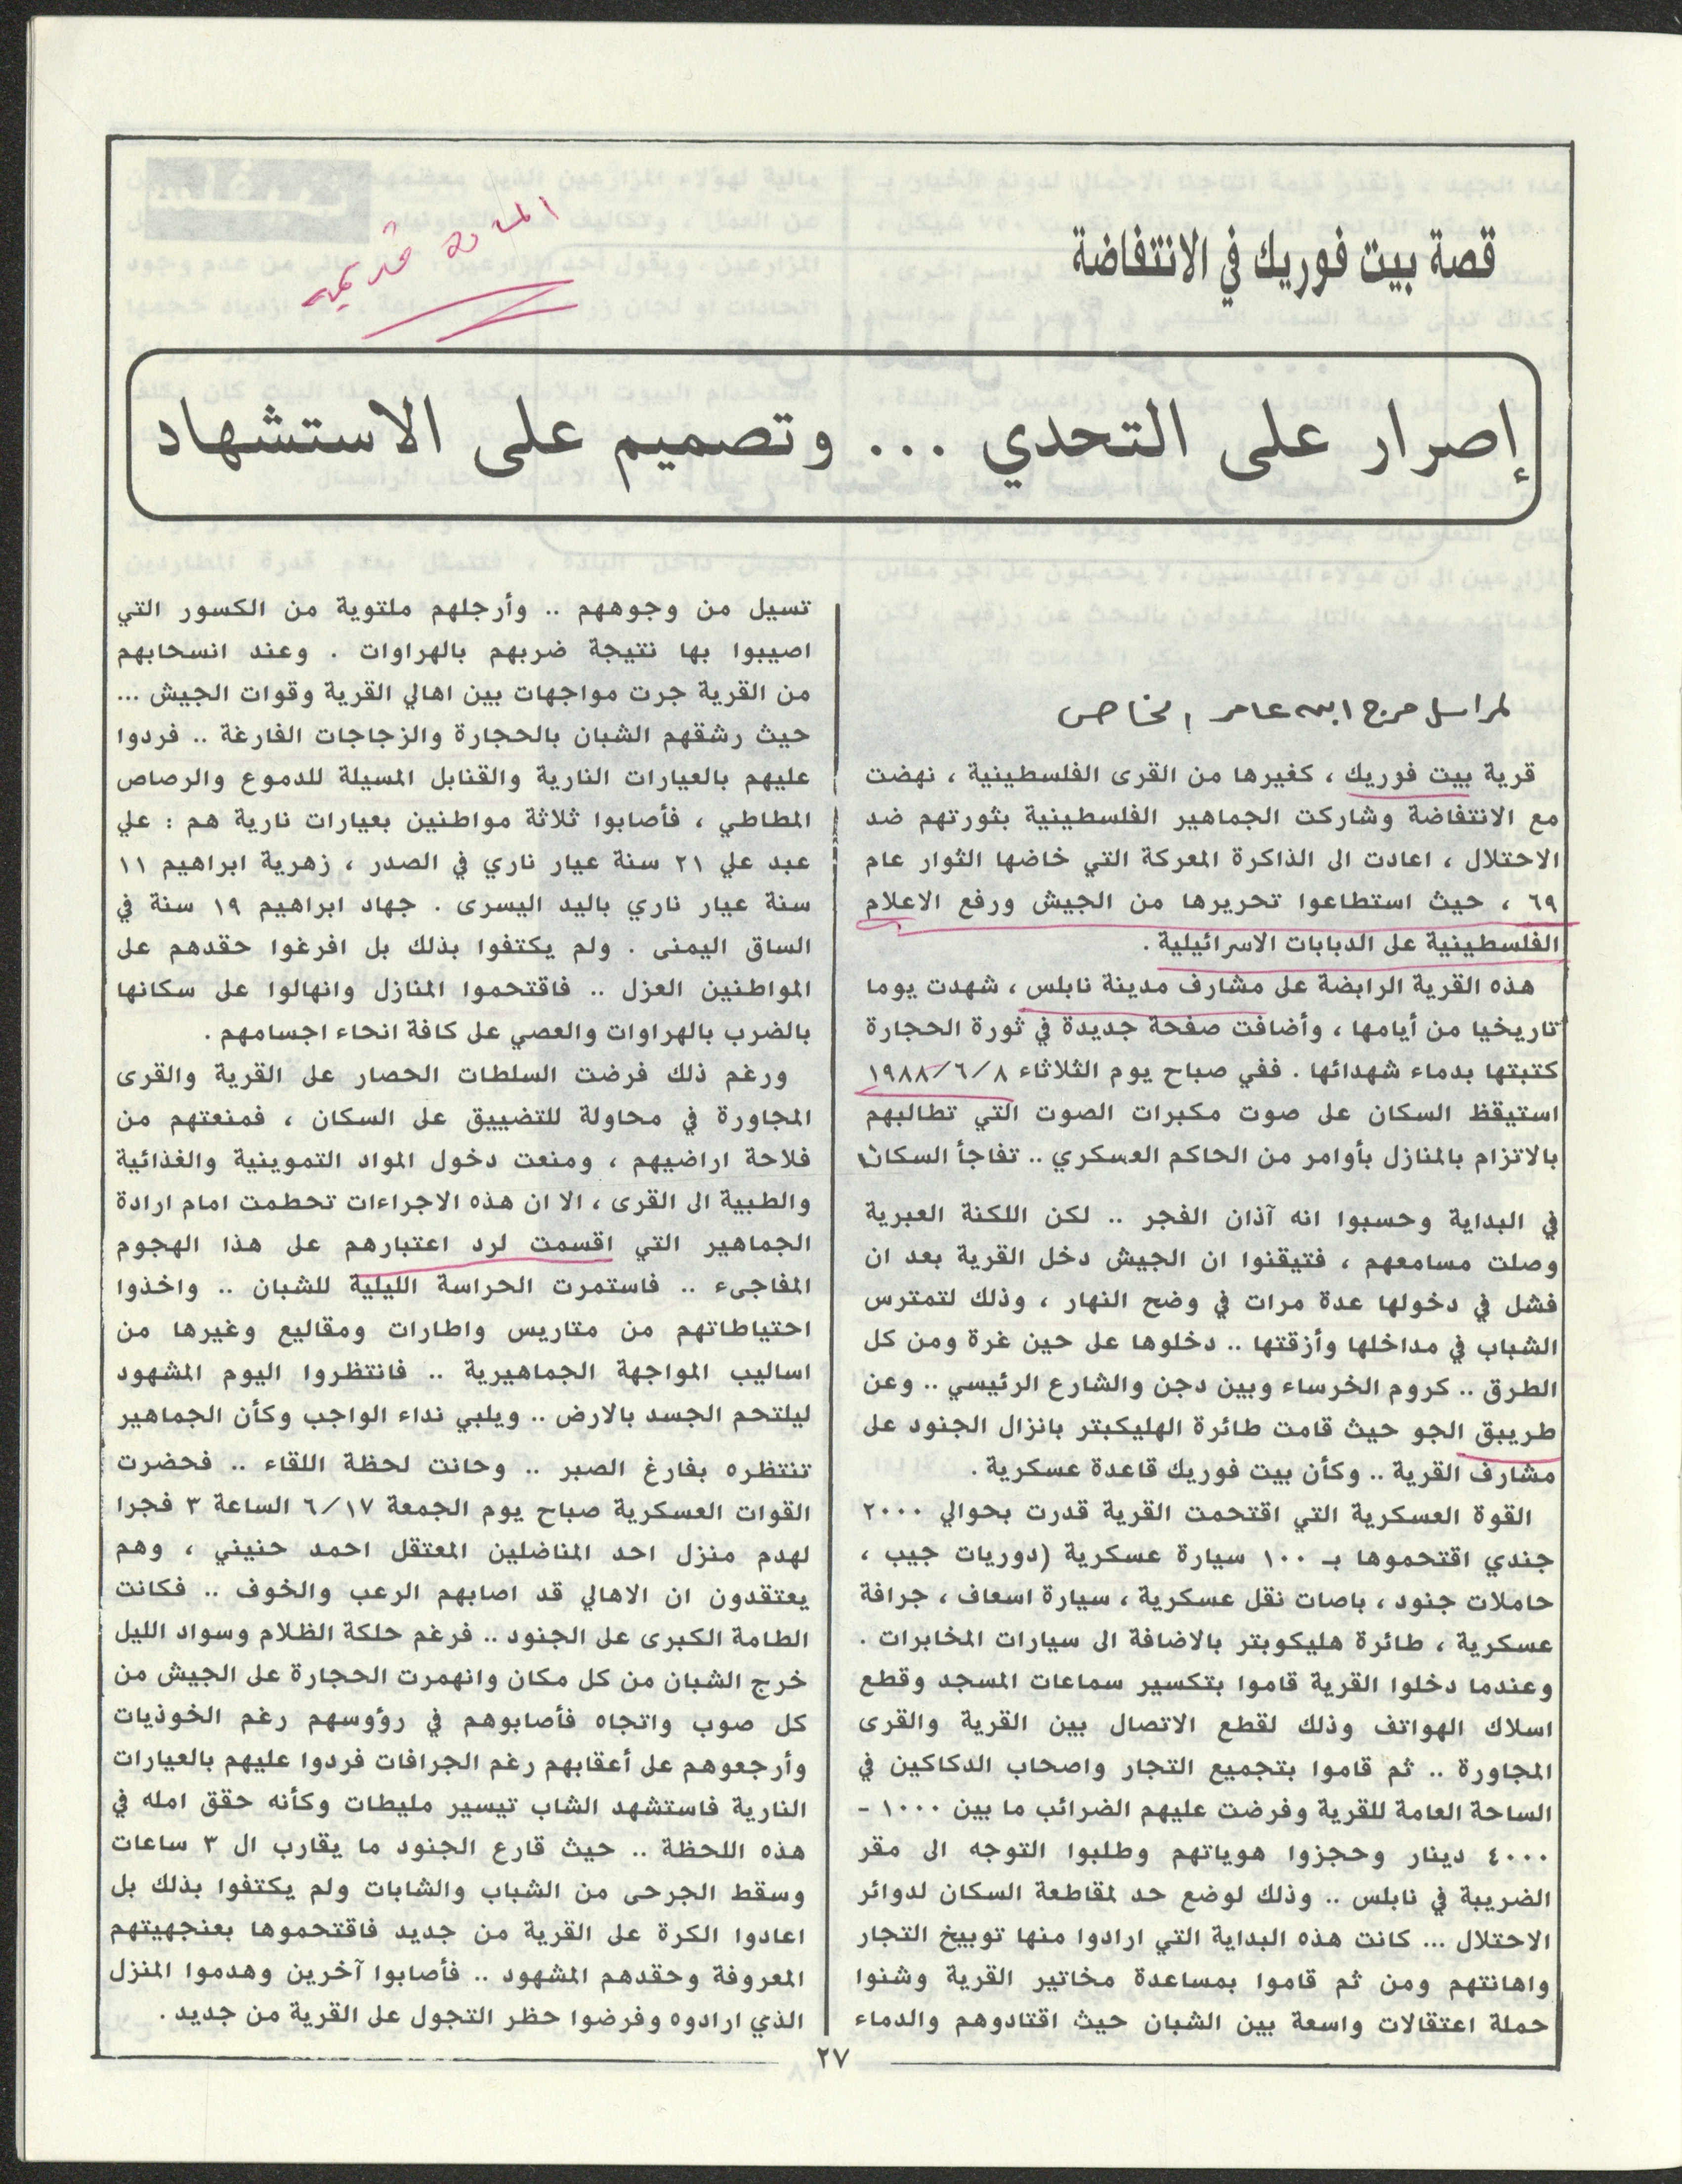 المادة قديمة
قصة بيت فوريك في الانتفاضة
إصرار على التحدي ... وتصميم على الاستشهاد
لمراسل مرج ابن عامر الخاص
قرية بيت فوريك ، كغيرها من القرى الفلسطينية ، نهضت
مع الانتفاضة وشاركت الجماهير الفلسطينية بثورتهم ضد
الاحتلال ، اعادت الى الذاكرة المعركة التي خاضها الثوار عام
٦٩ ، حيث استطاعوا تحريرها من الجيش ورفع الاعلام
الفلسطينية على الدبابات الاسرائيلية .
هذه القرية الرابضة على مشارف مدينة نابلس ، شهدت يوما
تاريخيا من أيامها ، وأضافت صفحة جديدة في ثورة الحجارة
كتبتها بدماء شهدائها . ففي صباح يوم الثلاثاء ١٩٨٨/٦/٨
استيقظ السكان على صوت مكبرات الصوت التي تطالبهم
بالاتزام بالمنازل بأوامر من الحاكم العسكري .. تفاجأ السكان
في البداية وحسبوا انه آذان الفجر .. لكن اللكنة العبرية
وصلت مسامعهم ، فتيقنوا ان الجيش دخل القرية بعد ان
فشل في دخولها عدة مرات في وضح النهار ، وذلك لتمترس
الشباب في مداخلها وأزقتها .. دخلوها على حين غرة ومن كل
الطرق .. كروم الخرساء وبين دجن والشارع الرئيسي .. وعن
طريبق الجو حيث قامت طائرة الهليكبتر بانزال الجنود على
مشارف القرية .. وكأن بيت فوريك قاعدة عسكرية .
القوة العسكرية التي اقتحمت القرية قدرت بحوالي ٢٠٠٠
جندي اقتحموها بـ ١٠٠ سيارة عسكرية (دوريات جيب ،
حاملات جنود ، باصات نقل عسكرية ، سيارة اسعاف ، جرافة
عسكرية ، طائرة هليكوبتر بالاضافة الى سيارات المخابرات .
وعندما دخلوا القرية قاموا بتكسير سماعات المسجد وقطع
اسلاك الهواتف وذلك لقطع الاتصال بين القرية والقرى
المجاورة .. ثم قاموا بتجميع التجار واصحاب الدكاكين في
الساحة العامة للقرية وفرضت عليهم الضرائب ما بين ١٠٠٠ -
٤٠٠٠ دينار وحجزوا هوياتهم وطلبوا التوجه الى مقر
الضريبة في نابلس .. وذلك لوضع حد لمقاطعة السكان لدوائر
الاحتلال ... كانت هذه البداية التي ارادوا منها توبيخ التجار
واهانتهم ومن ثم قاموا بمساعدة مخاتير القرية وشنوا
حملة اعتقالات واسعة بين الشبان حيث اقتادوهم والدماء
تسيل من وجوههم .. وأرجلهم ملتوية من الكسور التي
اصيبوا بها نتيجة ضربهم بالهراوات . وعند انسحابهم
من القرية جرت مواجهات بين اهالي القرية وقوات الجيش ...
حيث رشقهم الشبان بالحجارة والزجاجات الفارغة .. فردوا
عليهم بالعيارات النارية والقنابل المسيلة للدموع والرصاص
المطاطي ، فأصابوا ثلاثة مواطنين بعيارات نارية هم : علي
عبد علي ٢١ سنة عيار ناري في الصدر ، زهرية ابراهيم ١١
سنة عيار ناري باليد اليسرى . جهاد ابراهيم ١٩ سنة في
الساق اليمنى . ولم يكتفوا بذلك بل افرغوا حقدهم على
المواطنين العزل .. فاقتحموا المنازل وانهالوا على سكانها
بالضرب بالهراوات والعصي على كافة انحاء اجسامهم .
ورغم ذلك فرضت السلطات الحصار على القرية والقرى
المجاورة في محاولة للتضييق على السكان ، فمنعتهم من
فلاحة اراضيهم ، ومنعت دخول المواد التموينية والغذائية
والطبية الى القرى ، الا ان هذه الاجراءات تحطمت امام ارادة
الجماهير التي اقسمت لرد اعتبارهم على هذا الهجوم
المفاجىء .. فاستمرت الحراسة الليلية للشبان .. واخذوا
احتياطاتهم من متاريس واطارات ومقاليع وغيرها من
اساليب المواجهة الجماهيرية .. فانتظروا اليوم المشهود
ليلتحم الجسد بالارض .. ويلبي نداء الواجب وكأن الجماهير
تنتظره بفارغ الصبر .. وحانت لحظة اللقاء .. فحضرت
القوات العسكرية صباح يوم الجمعة ٦/١٧ الساعة ٣ فجرا
لهدم منزل احد المناضلين المعتقل احمد حنيني ، وهم
يعتقدون ان الاهالي قد اصابهم الرعب والخوف .. فكانت
الطامة الكبرى على الجنود .. فرغم حلكة الظلام وسواد الليل
خرج الشبان من كل مكان وانهمرت الحجارة على الجيش من
كل صوب واتجاه فأصابوهم في رؤوسهم رغم الخوذيات
وأرجعوهم على أعقابهم رغم الجرافات فردوا عليهم بالعيارات
النارية فاستشهد الشاب تيسير مليطات وكأنه حقق امله في
هذه اللحظة .. حيث قارع الجنود ما يقارب ال ٣ ساعات
وسقط الجرحى من الشباب والشابات ولم يكتفوا بذلك بل
اعادوا الكرة على القرية من جديد فاقتحموها بعنجهيتهم
المعروفة وحقدهم المشهود .. فأصابوا آخرين وهدموا المنزل
الذي ارادوه وفرضوا حظر التجول على القرية من جديد .
٢٧